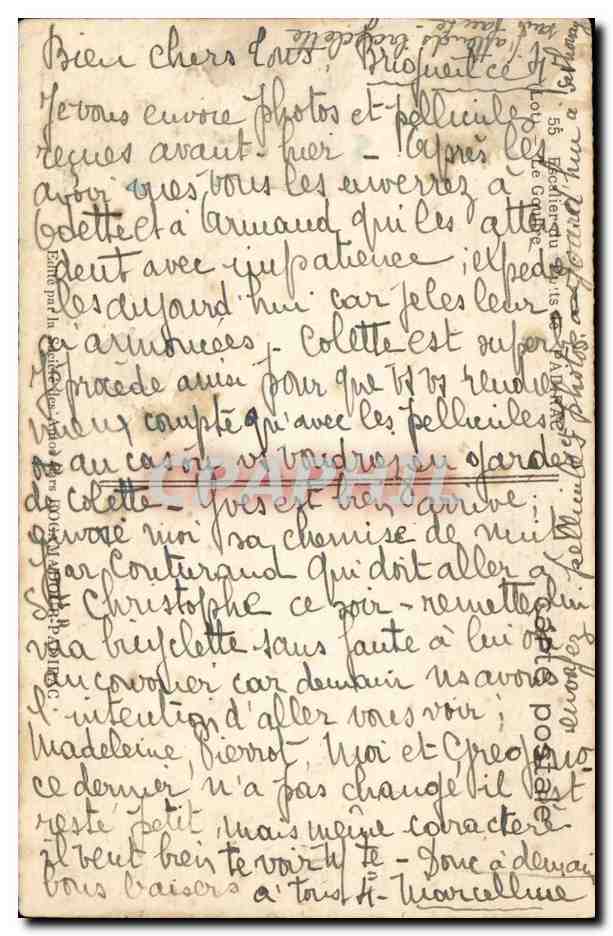 Bien chers tous, Brigueil ce 17
Je vous envoie photos et pellicules
reçues avant-hier - Après les
avoir vues vous les enverrez à
Odette et à Armand qui les atten
dent avec impatience ; expédi
les aujourd'hui car je les leur
ai annoncées, - Colette est super
procède ainsi pour que vs vs rendiez
mieux compte qu'avec les pellicules
au cas où vs voudrez en garder
de Colette - Yves est bien arrivé !
envoie moi sa chemise de nuit
par Couturaud qui doit aller à
St Christophe ce soir - remettez lui
ma bicyclette sans faute à lui ou
au courrier car demain ns avons
l'intention d'aller vous voir ;
Madeleine, Pierrot, Moi et Grégorio
ce dernier n'a pas changé il est
resté petit, mais même caractère
il veut bien te voir - Donc à demain
bons baisers à tous - Marcelline
j'attends bicyclette
sans faute
envoyez pellicules photos
55 Escalier du Puits de PADIRAC
Lot - Le Gouffre
Carte postale
Edité par la Société des
CPAPHIL